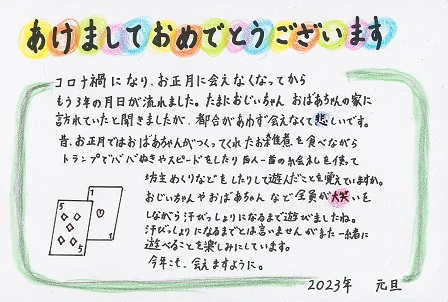 あけましておめでとうございます
コロナ禍になり、お正月に会えなくなってから
もう3年の月日が流れました。たまにおじいちゃん おばあちゃんの家に
訪れていたと聞きましたが、都合があわず会えなくて悲しいです。
昔、お正月ではおばあちゃんがつくってくれたお雑煮を食べながら
トランプでババぬきやスピードをしたり百人一首の絵札を使って
坊主めくりなどをしたりして遊んだことを覚えていますか。
おじいちゃんやおばあちゃんなど全員が大笑いを
しながら汗びっしょりになるまで遊びましたね。
汗びっしょりになるまでとは言いませんがまた一緒に
遊べることを楽しみにしています。
今年こそ、会えますように。
5
1
5
2023年 元旦